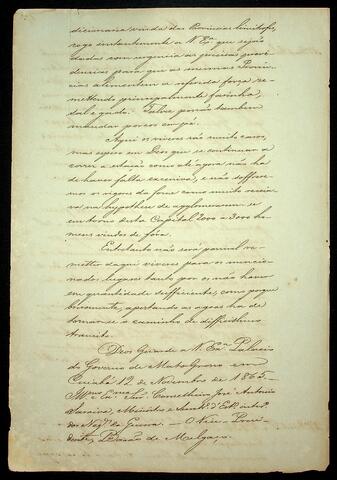 dicionaria vinda das Provincias limitrofes,
rogo instantemente a V. Exª que sejão
dadas com urgencia as precisas provi-
dencias para que as mesmas Provin-
cias alimentem a referida força re-
mettendo principalmente farinha,
sal e gado. Talvez possão tambem
mandar porcos em pé.
Aqui os viveres são muito caros,
mas espero em Deos que se continuar a
correr a estação como até agora não ha
de haver falta excessiva, e não soffrere-
mos os rigores da fome como muito receia-
va na hypothese de agglomerarem-se
em torno desta Capital 2000 a 3000 ho-
mens vindos de fóra.
Entretanto não será possivel re-
metter daqui viveres para os mencio-
nados lugares tanto por os não haver
em quantidade sufficiente, como porque
brevemente, apertando as agoas ha de
tornar-se o caminho de difficillimo
transito.
Deos Guarde a V. Exª Palacio
do Governo de Mato Grosso em
Cuiabá 12 de Novembro de 1865 —
Illmo e Exmo Snr. Conselheiro José Antonio
Saraiva, Ministro e Secretº d'Estº inter.º
dos Negº da Guerra. — O Vice-Presi-
dente, Barão de Melgaço.